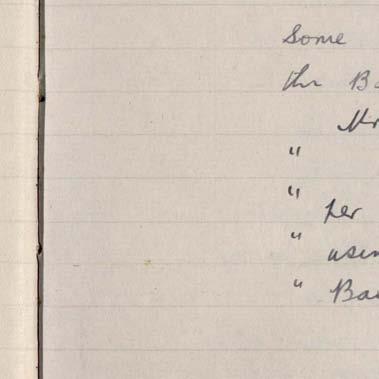 Some
the Ba
Mr
"
" per
" usin
" Bas